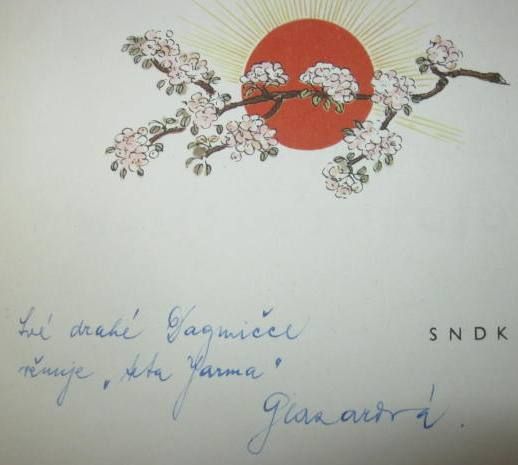 Své drahé Dagmičce
SNDK
věnuje „teta Jarma"
Glazarová.